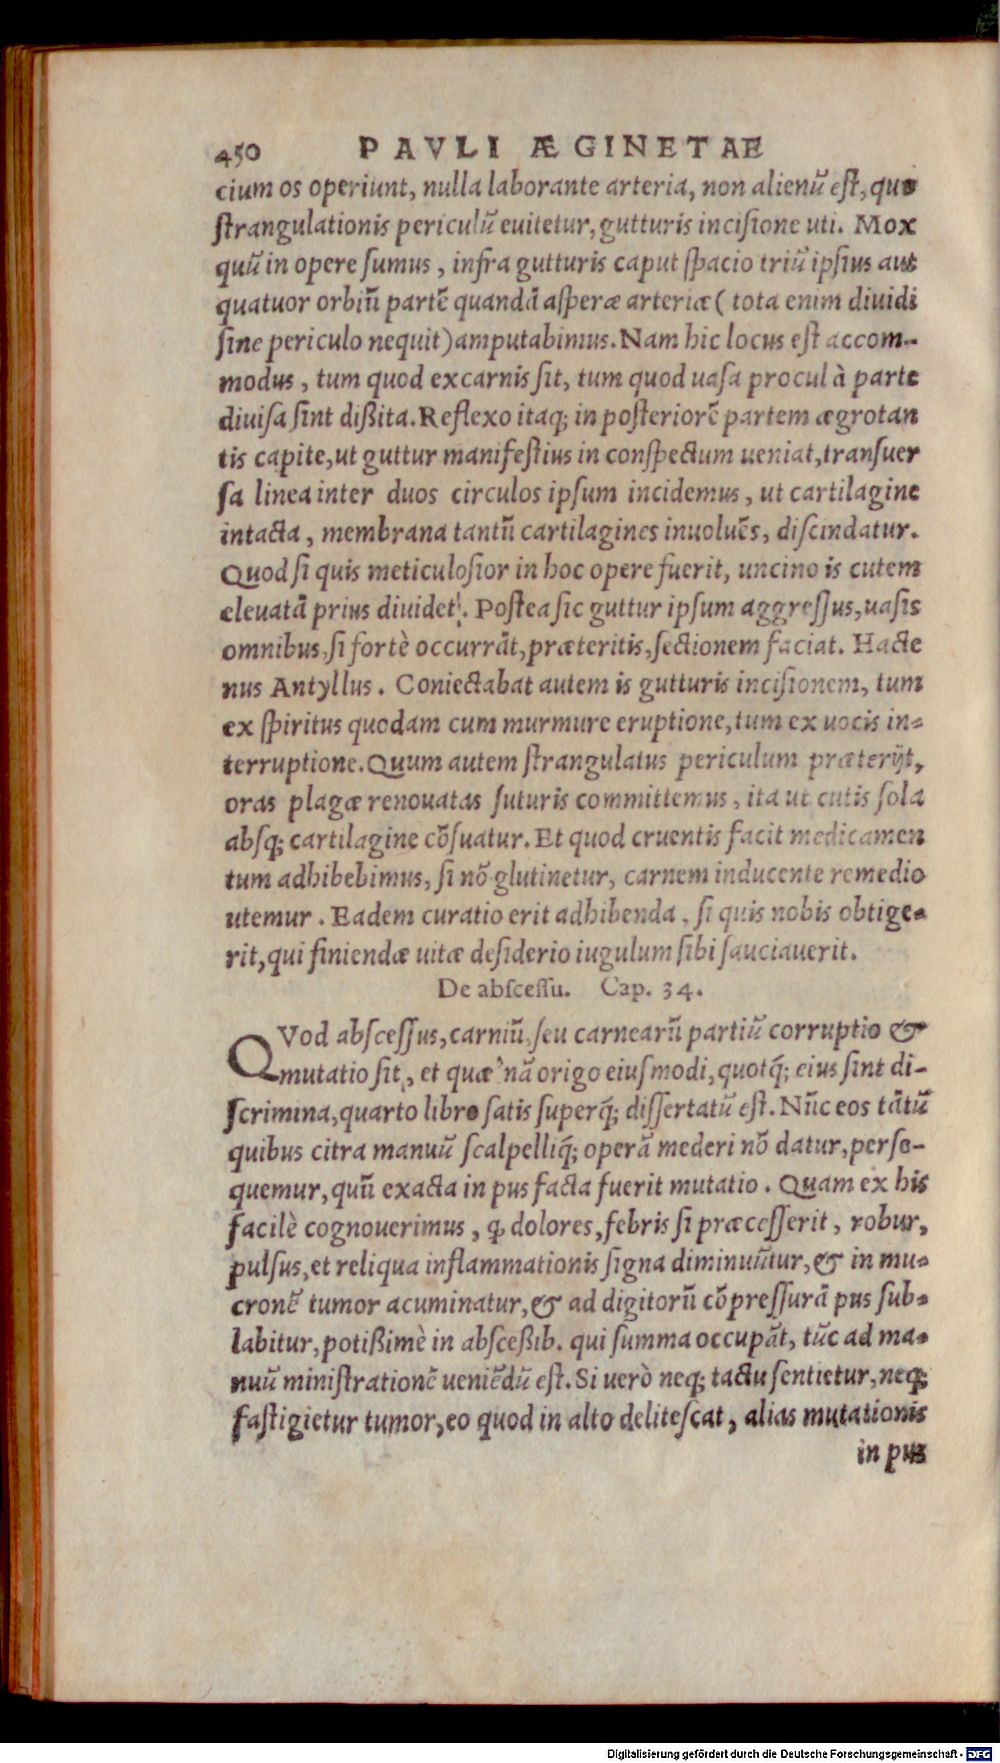 450 PAVLI ÆGINETAE
cium os operiunt, nulla laborante arteria, non alienũ est, quo
strangulationis periculũ euitetur, gutturis incisione uti. Mox
quũ in opere sumus, infra gutturis caput spacio triũ ipsius aut
quatuor orbiũ partẽ quandã asperæ arteriæ (tota enim diuidi
sine periculo nequit) amputabimus. Nam hic locus est accom-
modus, tum quod excarnis sit, tum quod uasa procul à parte
diuisa sint dißita. Reflexo itaq; in posteriorẽ partem ægrotan
tis capite, ut guttur manifestius in conspectum ueniat, transuer
sa linea inter duos circulos ipsum incidemus, ut cartilagine
intacta, membrana tantũ cartilagines inuoluẽs, discindatur.
Quod si quis meticulosior in hoc opere fuerit, uncino is cutem
eleuatã prius diuidet. Postea sic guttur ipsum aggressus, uasis
omnibus, si fortè occurrãt, præteritis, sectionem faciat. Hacte
nus Antyllus. Coniectabat autem is gutturis incisionem, tum
ex spiritus quodam cum murmure eruptione, tum ex uocis in-
terruptione. Quum autem strangulatus periculum præterijt,
oras plagæ renouatas suturis committemus, ita ut cutis sola
absq; cartilagine cõsuatur. Et quod cruentis facit medicamen
tum adhibebimus, si nõ glutinetur, carnem inducente remedio
utemur. Eadem curatio erit adhibenda, si quis nobis obtige-
rit, qui finiendæ uitæ desiderio iugulum sibi sauciauerit.
De abscessu. Cap. 34.
QVod abscessus, carniũ, seu carnearũ partiũ corruptio &
mutatio sit, et quæ nã origo eiusmodi, quotq́; eius sint di-
scrimina, quarto libro satis superq́; dissertatũ est. Nũc eos tãtũ
quibus citra manuũ scalpelliq́; operã mederi nõ datur, perse-
quemur, quũ exacta in pus facta fuerit mutatio. Quam ex his
facilè cognouerimus, ꝙ dolores, febris si præcesserit, robur,
pulsus, et reliqua inflammationis signa diminuũtur, & in mu-
cronẽ tumor acuminatur, & ad digitorũ cõpressurã pus sub-
labitur, potißimè in absceßib. qui summa occupãt, tũc ad ma-
nuũ ministrationẽ ueniẽdũ est. Si uerò neq; tactu sentietur, neq;
fastigietur tumor, eo quod in alto delitescat, alias mutationis
in pus
Digitalisierung gefördert durch die Deutsche Forschungsgemeinschaft - DFG